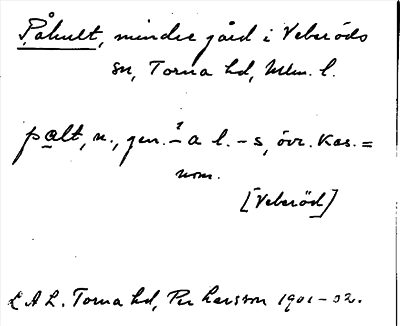 Påhult, mindre gård i Veberöds
sn, Torna hd, Mlm. l.
palt, n., gen. -a l. -s, övr. kas. =
nom.
[Veberöd]
L A L. Torna hd, Per Larsson 1901-02.